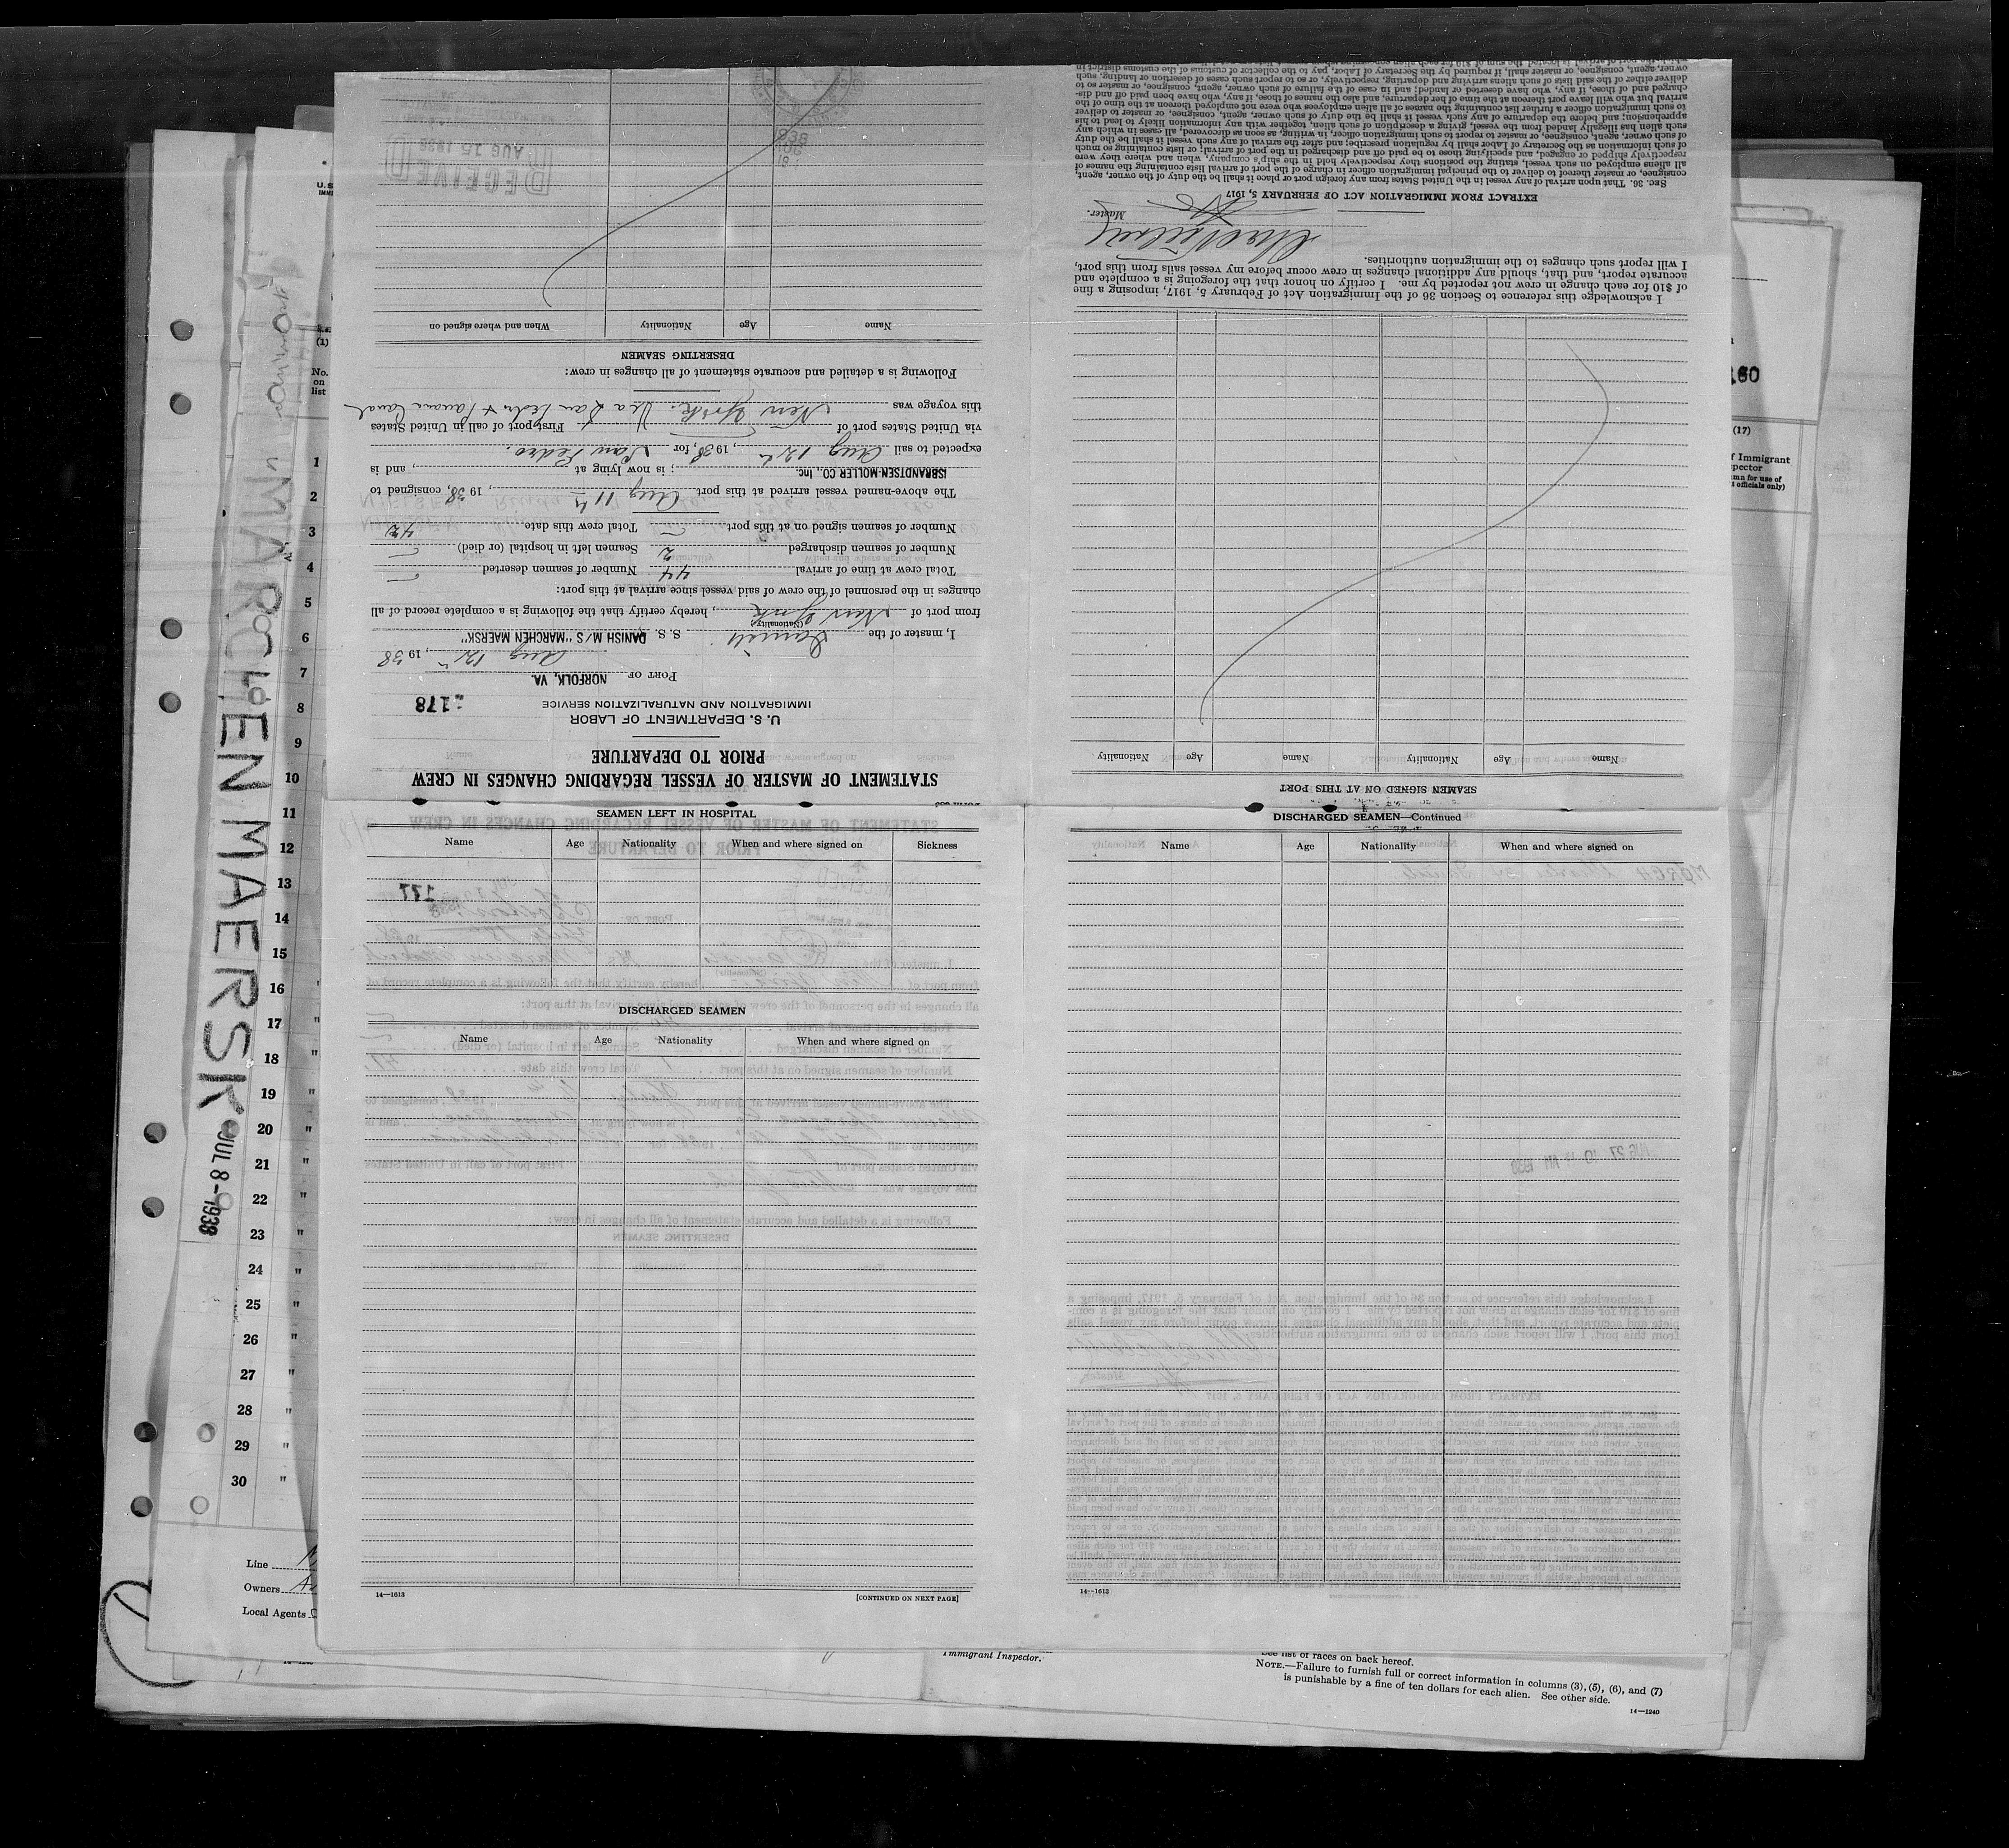 STATEMENT OF MASTER OF VESSEL REGARDING CHANGES IN CREW
PRIOR TO DEPARTURE
U. S. DEPARTMENT OF LABOR
IMMIGRATION AND NATURALIZATION SERVICE
178
PORT OF NORFOLK, VA.
Aug 12th, 1938
I, master of the Danish S. S. DANISH M/S "MARCHEN MAERSK"
(Nationality)
from port of New York, hereby certify that the following is a complete record of all
changes in the personnel of the crew of said vessel since arrival at this port:
Total crew at time of arrival 44 Number of seamen deserted —
Number of seamen discharged 2 Seamen left in hospital (or died) —
Number of seamen signed on at this port — Total crew this date 42
The above-named vessel arrived at this port Aug 11th, 1938, consigned to
ISBRANDTSEN-MOLLER CO., Inc. ; is now lying at , and is
expected to sail Aug 12th, 1938, for San Pedro.
via United States port of First port of call in United States
this voyage was New York. Via San Pedro + Panama Canal
Following is a detailed and accurate statement of all changes in crew:
DESERTING SEAMEN
Name Age Nationality When and where signed on
RECEIVED
AUG 15 1938
SEAMEN SIGNED ON AT THIS PORT
Name Age Nationality Name Age Nationality
I acknowledge this reference to Section 36 of the Immigration Act of February 5, 1917, imposing a fine
of $10 for each change in crew not reported by me. I certify on honor that the foregoing is a complete and
accurate report, and that, should any additional changes in crew occur before my vessel sails from this port,
I will report such changes to the immigration authorities.
Master.
EXTRACT FROM IMMIGRATION ACT OF FEBRUARY 5, 1917
SEC. 36. That upon arrival of any vessel in the United States from any foreign port or place it shall be the duty of the owner, agent,
consignee, or master thereof to deliver to the principal immigration officer in charge of the port of arrival lists containing the names of
all aliens employed on such vessel, stating the position they respectively hold in the ship's company, when and where they were
respectively shipped or engaged, and specifying those to be paid off and discharged in the port of arrival; or lists containing so much
of such information as the Secretary of Labor shall by regulation prescribe; and after the arrival of any such vessel it shall be the duty
of such owner, agent, consignee, or master to report to such immigration officer, in writing, as soon as discovered, all cases in which any
such alien has illegally landed from the vessel, giving a description of such alien, together with any information likely to lead to his
apprehension; and before the departure of any such vessel it shall be the duty of such owner, agent, consignee, or master to deliver
to such immigration officer a further list containing the names of all alien employees who were not employed thereon at the time of the
arrival but who will leave port thereon at the time of her departure, and also the names of those, if any, who have been paid off and dis-
charged and of those, if any, who have deserted or landed; and in case of the failure of such owner, agent, consignee, or master so to
deliver either of the said lists of such aliens arriving and departing, respectively, or so to report such cases of desertion or landing, such
owner, agent, consignee, or master shall, if required by the Secretary of Labor, pay to the collector of customs of the customs district in
SEAMEN LEFT IN HOSPITAL
Name Age Nationality When and where signed on Sickness
177
DISCHARGED SEAMEN
Name Age Nationality When and where signed on
14—1613
[CONTINUED ON NEXT PAGE]
DISCHARGED SEAMEN—Continued
Name Age Nationality When and where signed on
14—1613
MARCHEN MAERSK
JUL 8 - 1938
No.
on
list
1
2
3
4
5
6
7
8
9
10
11
12
13
14
15
16
17 "
18 "
19 "
20 "
21 "
22 "
23 "
24 "
25 "
26 "
27 "
28 "
29 "
30 "
Line
Owners
Local Agents
160
(17)
Immigrant Inspector.
See list of races on back hereof.
NOTE.—Failure to furnish full or correct information in columns (3), (5), (6), and (7)
is punishable by a fine of ten dollars for each alien. See other side.
14—1240